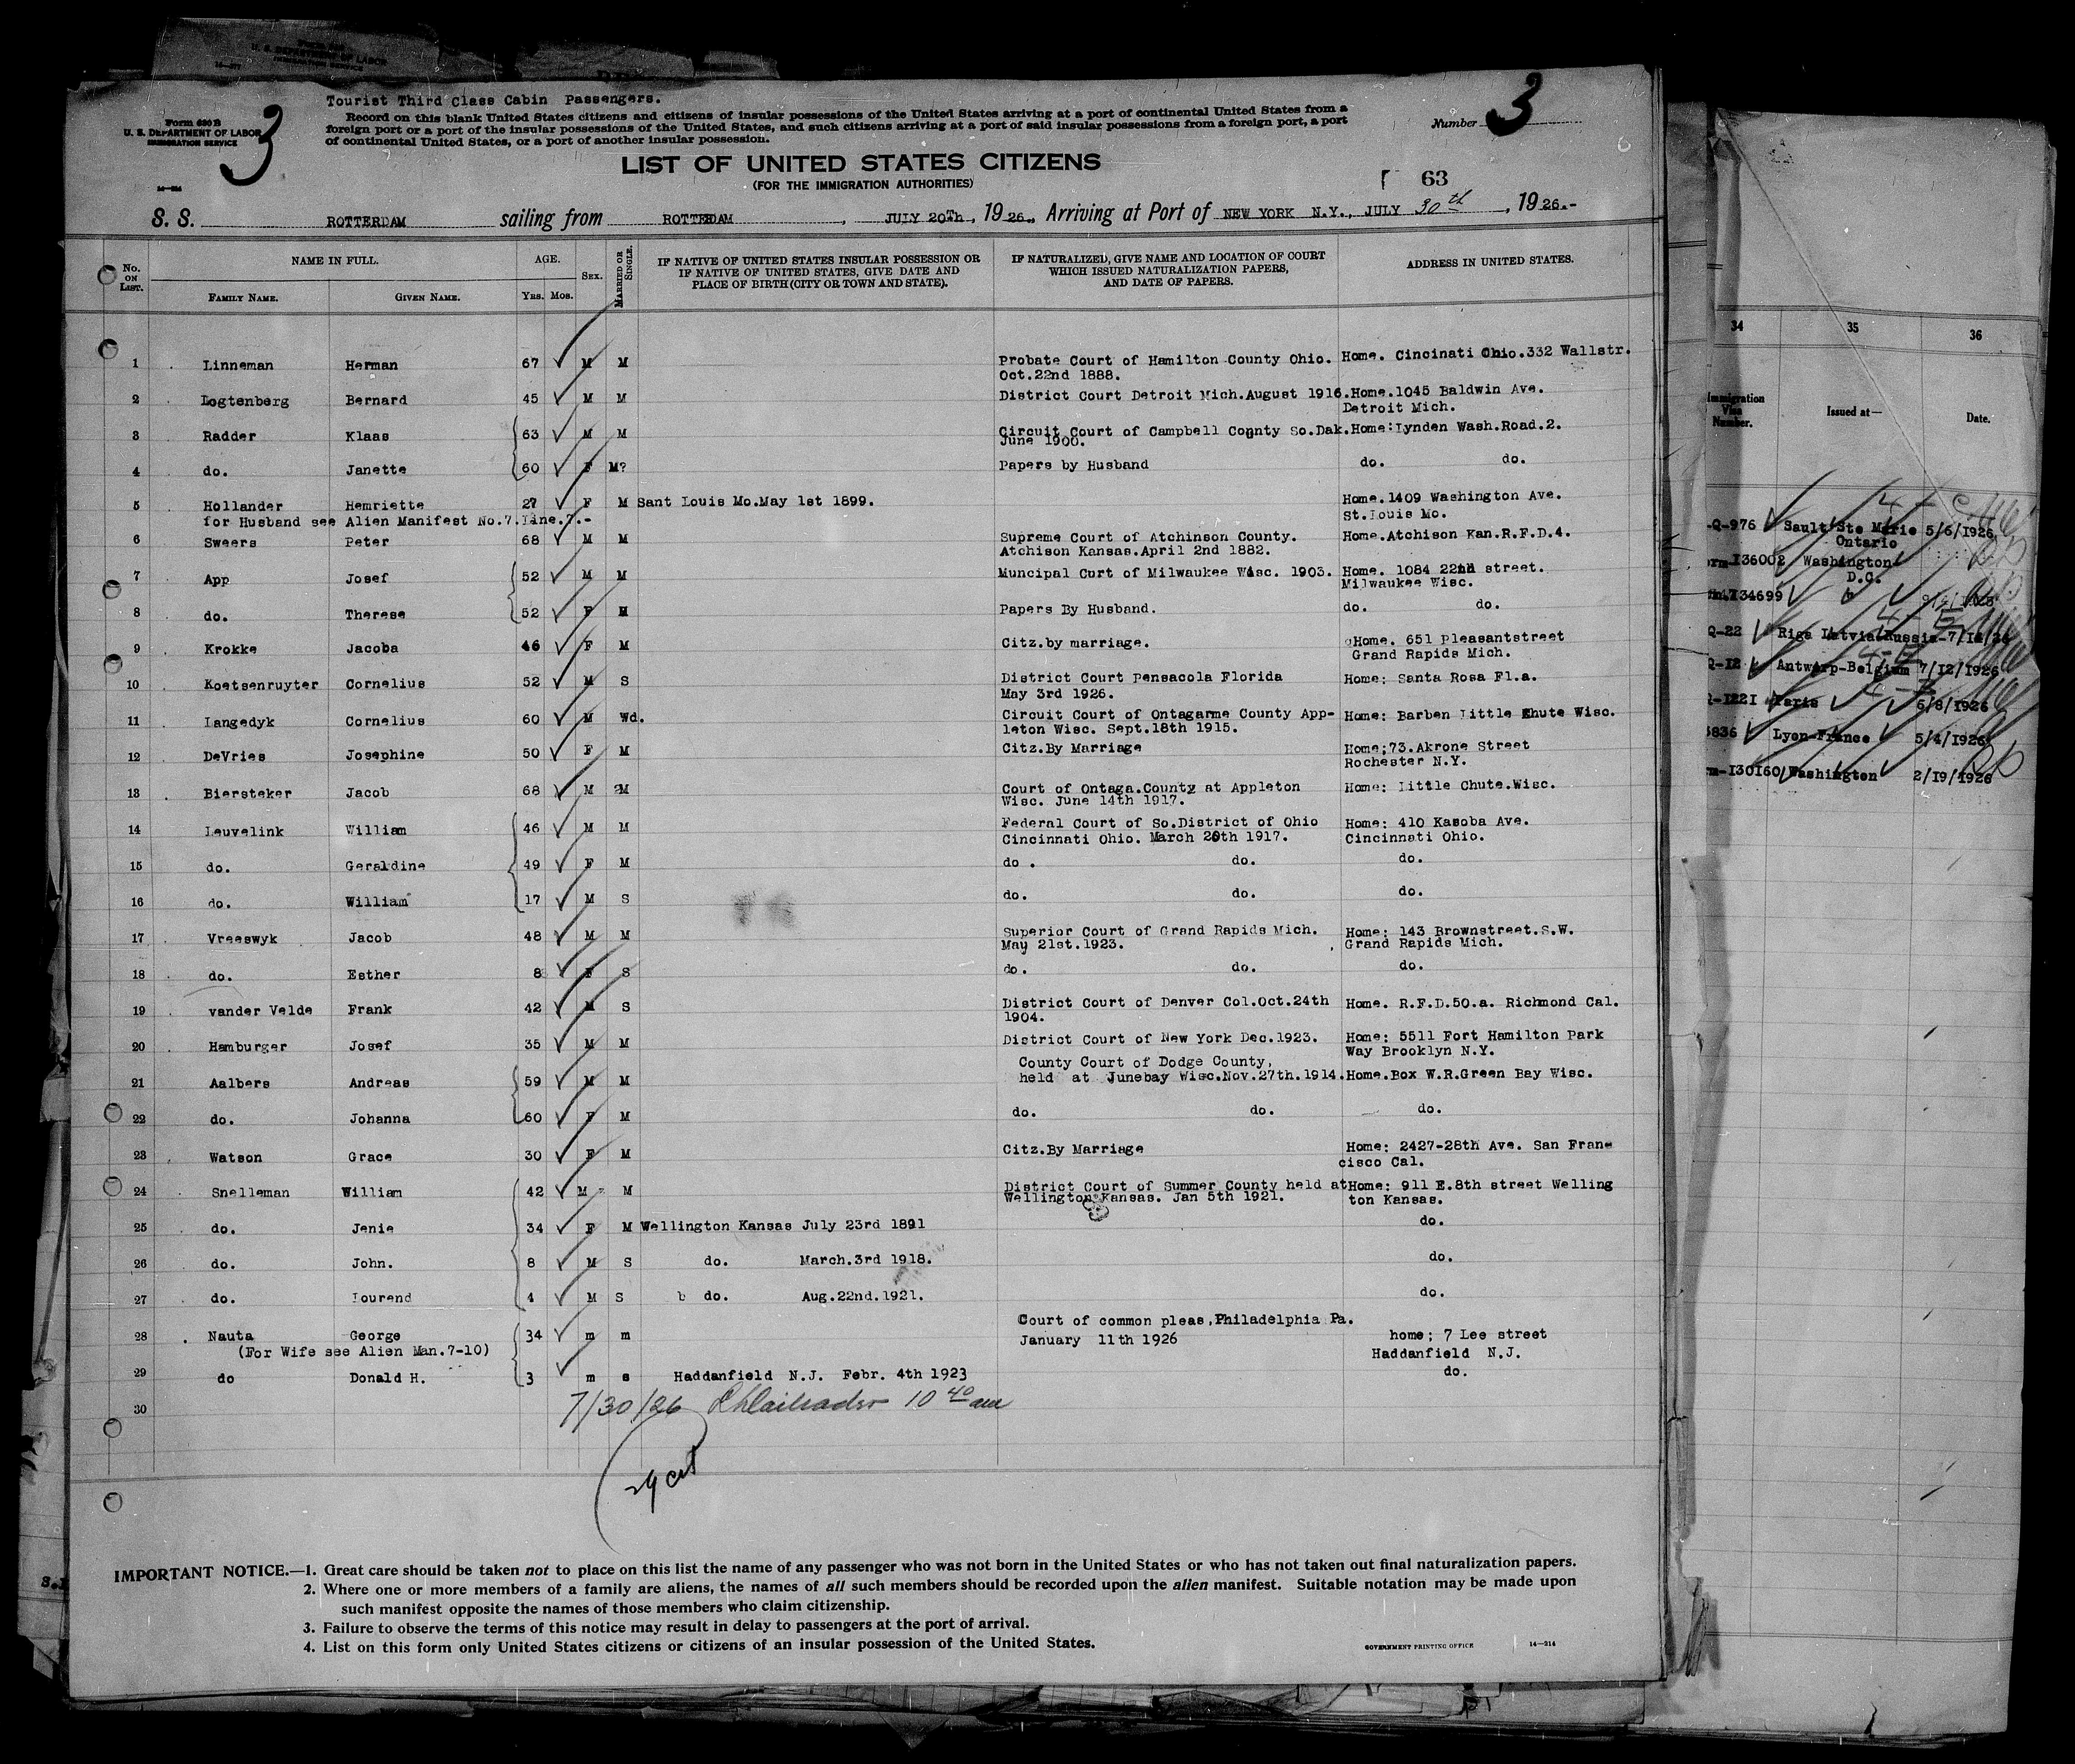 Tourist Third Class Cabin Passengers.
Form 630 B
U. S. DEPARTMENT OF LABOR
IMMIGRATION SERVICE
3
Record on this blank United States citizens and citizens of insular possessions of the United States arriving at a port of continental United States from a
foreign port or a port of the insular possessions of the United States, and such citizens arriving at a port of said insular possessions from a foreign port, a port
of continental United States, or a port of another insular possession.
Number 3
LIST OF UNITED STATES CITIZENS
(FOR THE IMMIGRATION AUTHORITIES)
63
S. S. ROTTERDAM sailing from ROTTERDAM, JULY 20Th, 1926., Arriving at Port of NEW YORK N.Y., JULY 30th, 1926.-
No. ON LIST. NAME IN FULL. AGE. SEX. MARRIED OR SINGLE. IF NATIVE OF UNITED STATES INSULAR POSSESSION OR IF NATIVE OF UNITED STATES, GIVE DATE AND PLACE OF BIRTH (CITY OR TOWN AND STATE). IF NATURALIZED, GIVE NAME AND LOCATION OF COURT WHICH ISSUED NATURALIZATION PAPERS, AND DATE OF PAPERS. ADDRESS IN UNITED STATES.
FAMILY NAME. GIVEN NAME. YRS. MOS.
1 Linneman Herman 67 M M Probate Court of Hamilton County Ohio. Home. Cincinati Ohio.332 Wallstr.
Oct.22nd 1888.
2 Logtenberg Bernard 45 M M District Court Detroit Mich.August 1916. Home.1045 Baldwin Ave.
Detroit Mich.
3 Radder Klaas 63 M M Circuit Court of Campbell County So.Dak. Home:Lynden Wash.Road.2.
June 1900.
4 do. Janette 60 F M? Papers by Husband do. do.
5 Hollander Henriette 27 F M Sant Louis Mo.May 1st 1899. Home.1409 Washington Ave.
for Husband see Alien Manifest No.7.Line.7.- St.Louis Mo.
6 Sweers Peter 68 M M Supreme Court of Atchinson County. Home.Atchison Kan.R.F.D.4.
Atchison Kansas.April 2nd 1882.
7 App Josef 52 M M Muncipal Curt of Milwaukee Wisc. 1903. Home. 1084 22nd street.
Milwaukee Wisc.
8 do. Therese 52 F M Papers By Husband. do. do.
9 Krokke Jacoba 46 F M Citz.by marriage. Home. 651 Pleasantstreet
Grand Rapids Mich.
10 Koetsenruyter Cornelius 52 M S District Court Pensacola Florida Home: Santa Rosa Fl.a.
May 3rd 1926.
11 Langedyk Cornelius 60 M Wd. Circuit Court of Ontagarme County App- Home: Barben Little Chute Wisc.
leton Wisc. Sept.18th 1915.
12 DeVries Josephine 50 F M Citz.By Marriage Home;73.Akrone Street
Rochester N.Y.
13 Biersteker Jacob 68 M M Court of Ontaga.County at Appleton Home: Little Chute.Wisc.
Wisc. June 14th 1917.
14 Leuvelink William 46 M M Federal Court of So.District of Ohio Home: 410 Kasoba Ave.
Cincinnati Ohio. March 20th 1917. Cincinnati Ohio.
15 do. Geraldine 49 F M do . do. do.
16 do. William 17 M S do. do. do.
17 Vreeswyk Jacob 48 M M Superior Court of Grand Rapids Mich. Home: 143 Brownstreet.S.W.
May 21st.1923. Grand Rapids Mich.
18 do. Esther 8 F S do. do. do.
19 vander Velde Frank 42 M S District Court of Denver Col.Oct.24th Home. R.F.D.50.a. Richmond Cal.
1904.
20 Hamburger Josef 35 M M District Court of New York Dec.1923. Home: 5511 Fort Hamilton Park
Way Brooklyn N.Y.
County Court of Dodge County,
21 Aalbers Andreas 59 M M held at Junebay Wisc.Nov.27th.1914. Home.Box W.R.Green Bay Wisc.
22 do. Johanna 60 F M do. do. do.
23 Watson Grace 30 F M Citz.By Marriage Home: 2427-28th Ave. San Fran-
cisco Cal.
24 Snelleman William 42 M M District Court of Summer County held at Home: 911 E.8th street Welling
Wellington Kansas. Jan 5th 1921. ton Kansas.
25 do. Jenie 34 F M Wellington Kansas July 23rd 1891 do.
26 do. John. 8 M S do. March.3rd 1918. do.
27 do. Lourend 4 M S do. Aug.22nd.1921. do.
Court of common pleas,Philadelphia Pa.
28 Nauta George 34 m m January 11th 1926 home; 7 Lee street
(For Wife see Alien Man.7-10) Haddanfield N.J.
29 do Donald H. 3 m s Haddanfield N.J. Febr. 4th 1923 do.
30 7/30/26 10 40 am
29 cit
IMPORTANT NOTICE.—1. Great care should be taken not to place on this list the name of any passenger who was not born in the United States or who has not taken out final naturalization papers.
2. Where one or more members of a family are aliens, the names of all such members should be recorded upon the alien manifest. Suitable notation may be made upon
such manifest opposite the names of those members who claim citizenship.
3. Failure to observe the terms of this notice may result in delay to passengers at the port of arrival.
4. List on this form only United States citizens or citizens of an insular possession of the United States.
GOVERNMENT PRINTING OFFICE 14—214
34 35 36
Immigration Visa Number. Issued at— Date.
Q-976 Sault Ste Marie 5/6/1926
Ontario
136002 Washington
D.C.
134699
Q-22 Riga Latvia Russia-
Q-12 Antwerp-Belgium 7/12/1926
1221 Paris 6/8/1926
3836 Lyon-France 5/4/1926
130160 Washington 2/19/1926